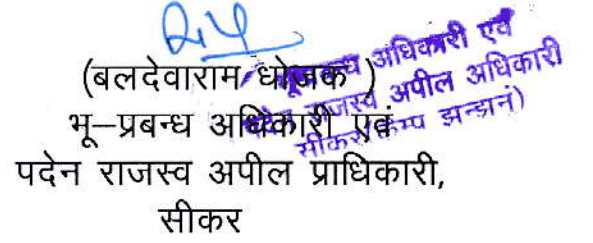 (बलदेवाराम धोजक )
भू–प्रबन्ध अधिकारी एवं
पदेन राजस्व अपील प्राधिकारी,
सीकर
भू प्रबन्ध अधिकारी एवं
पदेन राजस्व अपील अधिकारी
सीकर (कैम्प झुन्झुनूं)